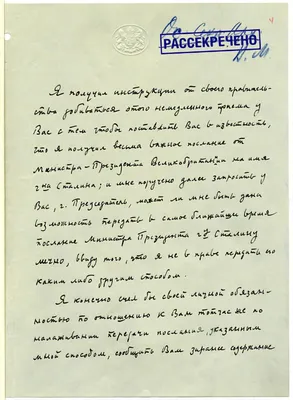 4
РАССЕКРЕЧЕНО
Я получил инструкции от своего правитель-
ства добиваться этого немедленного приема у
Вас с тем чтобы поставить Вас в известность,
что я получил весьма важное послание от
Министра-Президента Великобритании на имя
г-на Сталина; и мне поручено далее запросить у
Вас, г. Председатель, может ли мне быть дана
возможность передать в самое ближайшее время
послание Министра Президента г-ну Сталину
лично, ввиду того, что я не в праве передать его
каким либо другим способом.
Я конечно счел бы своей личной обязан-
ностью по отношению к Вам тотчас же по
налаживании передачи послания, указанным
мной способом, сообщить Вам заранее содержание